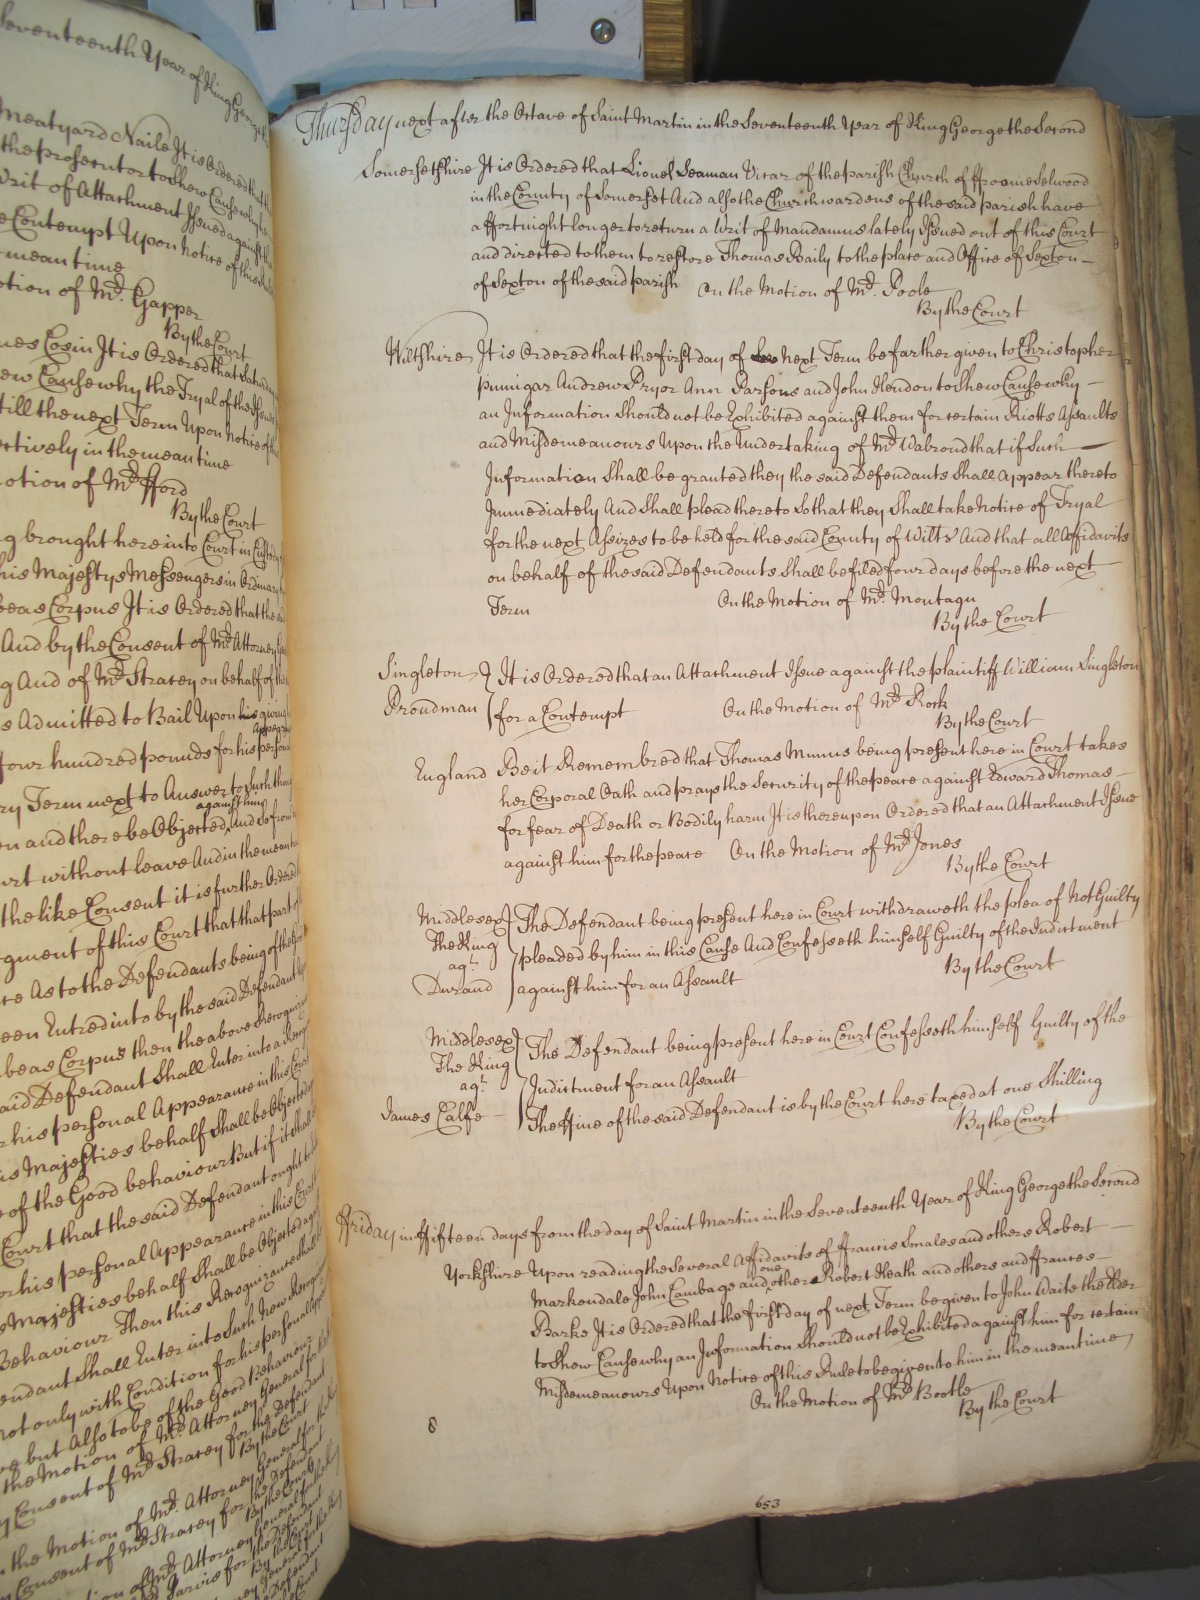 Seventeenth Year of King George the
Meatyard Naile It is Ordered that
the prosecutor to Shew Cause why
Writ of Attachment Issued against
Contempt Upon Notice of this
meantime
otion of Mr. Gapper
By the Court
Cosin It is Ordered that
Cause why the Tryal of the
till the next Term Upon Notice of
ectively in the mean time
otion of Mr. fford
By the Court
g brought here into Court in
his Majestys Messengers in Ordinary
beas Corpus It is Ordered that the
And by the Consent of Mr. Attorney
g And of Mr. Stracey on behalf of
s Admitted to Bail Upon his giving
four hundred pounds for his person
ry Term next to Answer to Such things
against him
n and there be Objected And
urt without leave And in the mean
the like Consent it is further Ordered
gment of this Court that that part of
re As to the Defendants being of the
een Entred into by the said Defendant
beas Corpus then the above Recogniz
aid Defendant Shall Enter into a
r his personal Appearance in this Court
is Majesties behalf Shall be Objected
of the Good behaviour But if it Shall
Court that the said Defendant ought to
or his personal Appearance in this Court
s Majesties behalf Shall be Objected
Behaviour Then this Recognizance Shall
endant Shall Enter into Such New
not only with Condition for his personal
but Also to be of the Good Behaviour
the Motion of Mr. Attorney General
y Consent of Mr. Stracey for the Defendant
By the Court
n the Motion of Mr. Attorney General for the
Consent of Mr. Stracey for the Defendant
By the Court
tion of Mr. Attorney General for the
Mr. Jarvis for the Defendant
By the Court
Thursday next after the Octave of Saint Martin in the Seventeenth Year of King George the Second
Somersetshire It is Ordered that Lionel Seaman Vicar of the parish Church of ffroome Selwood
in the County of Somerset And also the Churchwardens of the said parish have
a ffortnight longer to return a Writ of Mandamus lately Issued out of this Court
and directed to them to restore Thomas Baily to the place and Office of Sexton
of Sexton of the said parish On the Motion of Mr. Poole
By the Court
Wiltshire It is Ordered that the first day of next Term be farther given to Christopher
pinnigar Andrew Pryor Ann Parsons and John Hendon to Shew Cause why
an Information Should not be Exhibited against them for certain Riotts Assaults
and Misdemeanours Upon the Undertaking of Mr. Walrond that if Such
Information Shall be granted they the said Defendants Shall Appear thereto
Immediately And Shall plead thereto So that they Shall take Notice of Tryal
for the next Assizes to be held for the said County of Wilts And that all Affidavits
on behalf of the said Defendants Shall be filed four days before the next
Term On the Motion of Mr. Montagu
By the Court
Singleton It is Ordered that an Attachment Issue against the plaintiff William Singleton
Proudman for a Contempt On the Motion of Mr. Rock
By the Court
England Be it Remembred that Thomas Minns being present here in Court takes
her Corporal Oath and prays the Security of the peace against Edward Thomas
for fear of Death or Bodily harm It is thereupon Ordered that an Attachment Issue
against him for the peace On the Motion of Mr. Jones
By the Court
Middlesex The Defendant being present here in Court withdraweth the plea of Not Guilty
The King pleaded by him in this Cause And Confesseth himself Guilty of the Indictment
agt.
By the Court
Durand against him for an Assault
Middlesex The Defendant being present here in Court Confesseth himself Guilty of the
The King
agt. Indictment for an Assault
James Calfe The ffine of the said Defendant is by the Court here taxed at one Shilling
By the Court
ffriday in ffifteen days from the day of Saint Martin in the Seventeenth Year of King George the Second
Yorkshire Upon reading the several Affidavits of ffrancis Smales and others Robert
one
Markendale John Cambage and other Robert Heath and others and ffrances
Barke It is Ordered that the first day of next Term be given to John Waite the Elder
to Shew Cause why an Information Should not be Exhibited against him for certain
Misdemeanours Upon Notice of this Rule to be given to him in the mean time
On the Motion of Mr. Bootle
By the Court
8
653